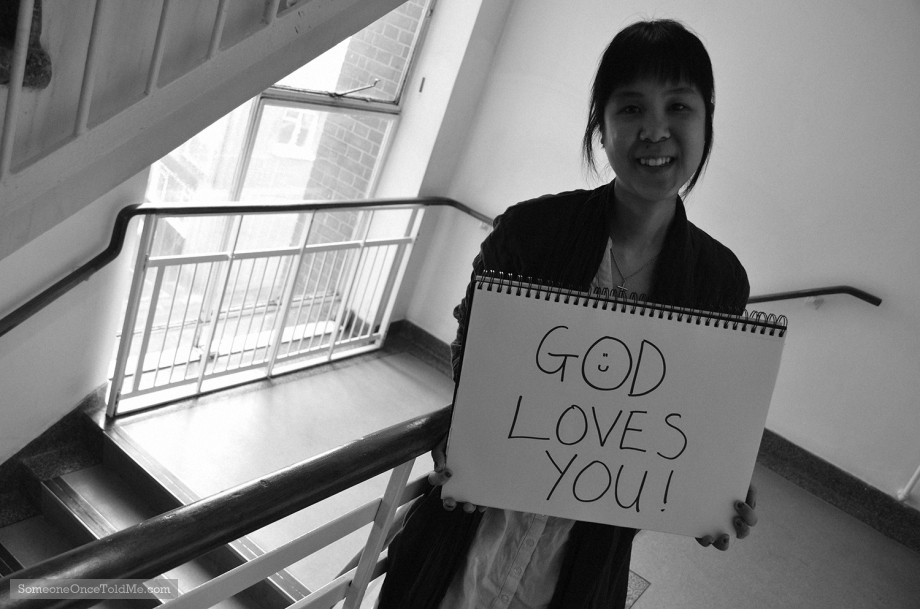 GOD
LOVES
YOU!
SomeoneOnceToldMe.com